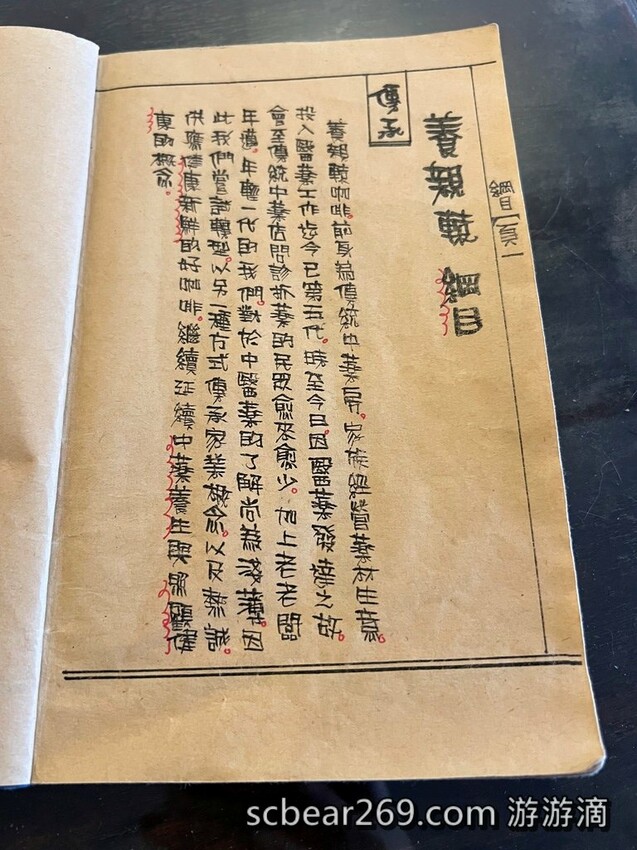 綱目【頁一
養親轆 綱目
傳承
養親轆咖啡。前身為傳統中藥房。家族經營藥材生意。
投入醫藥工作迄今已第五代。時至今日因醫藥發達之故。
會至傳統中藥店問診抓藥的民眾愈來愈少。加上老老闆
年邁。年輕一代的我們。對於中醫藥的了解尚為淺薄。因
此我們嘗試轉型。以另一種方式傳承家業概念。以及熱誠。
供應健康新鮮的好咖啡。繼續延續中藥養生與照顧健
康的概念。
scbear269.com 游游滴